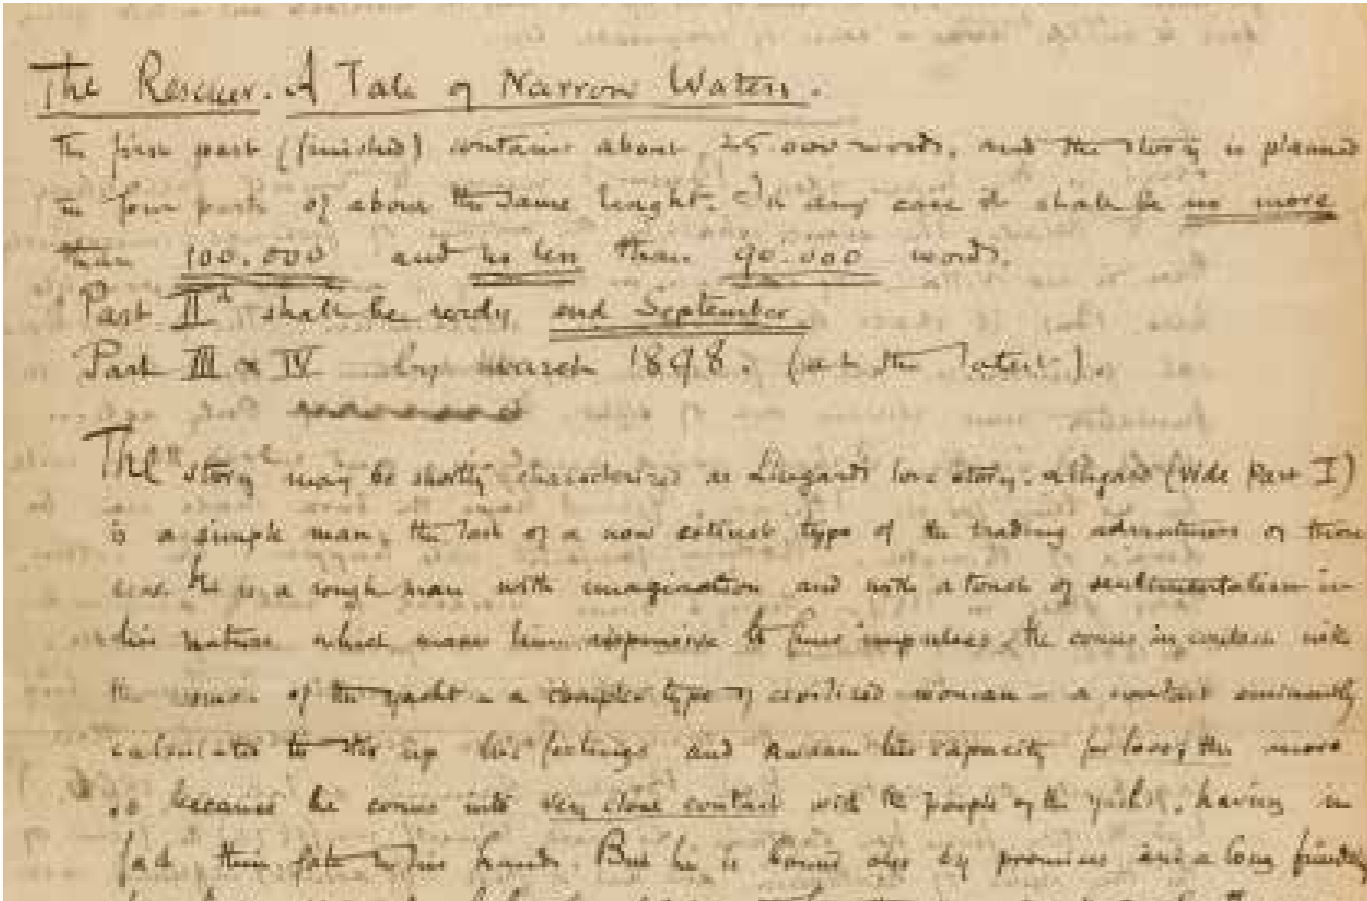 The Rescuer. A Tale of Narrow Waters.
The first part (finished) contains about 25.000 words, and the story is planned
in four parts of about the same lenght. In any case it shall be no more
than 100.000 and no less than 90.000 words.
Part IId shall be ready end September
Part III & IV March 1898. (at the latest).
The story may be shortly characterized as Lingard's love story. Lingard (Vide Part I)
is a simple man, the last of a now extinct type of the trading adventurers of those
seas. He is a rough man with imagination and with a touch of sentimentalism in
his nature which makes him responsive to fine impulses. He comes in contact with
the woman of the yacht – a complex type of civilized woman – a contact eminently
calculated to stir up his feelings and awaken his capacity for love; the more
so because he comes into very close contact with the people of the yacht, having in
fact their fate in his hands. But he is bound also by promises and a long friendly